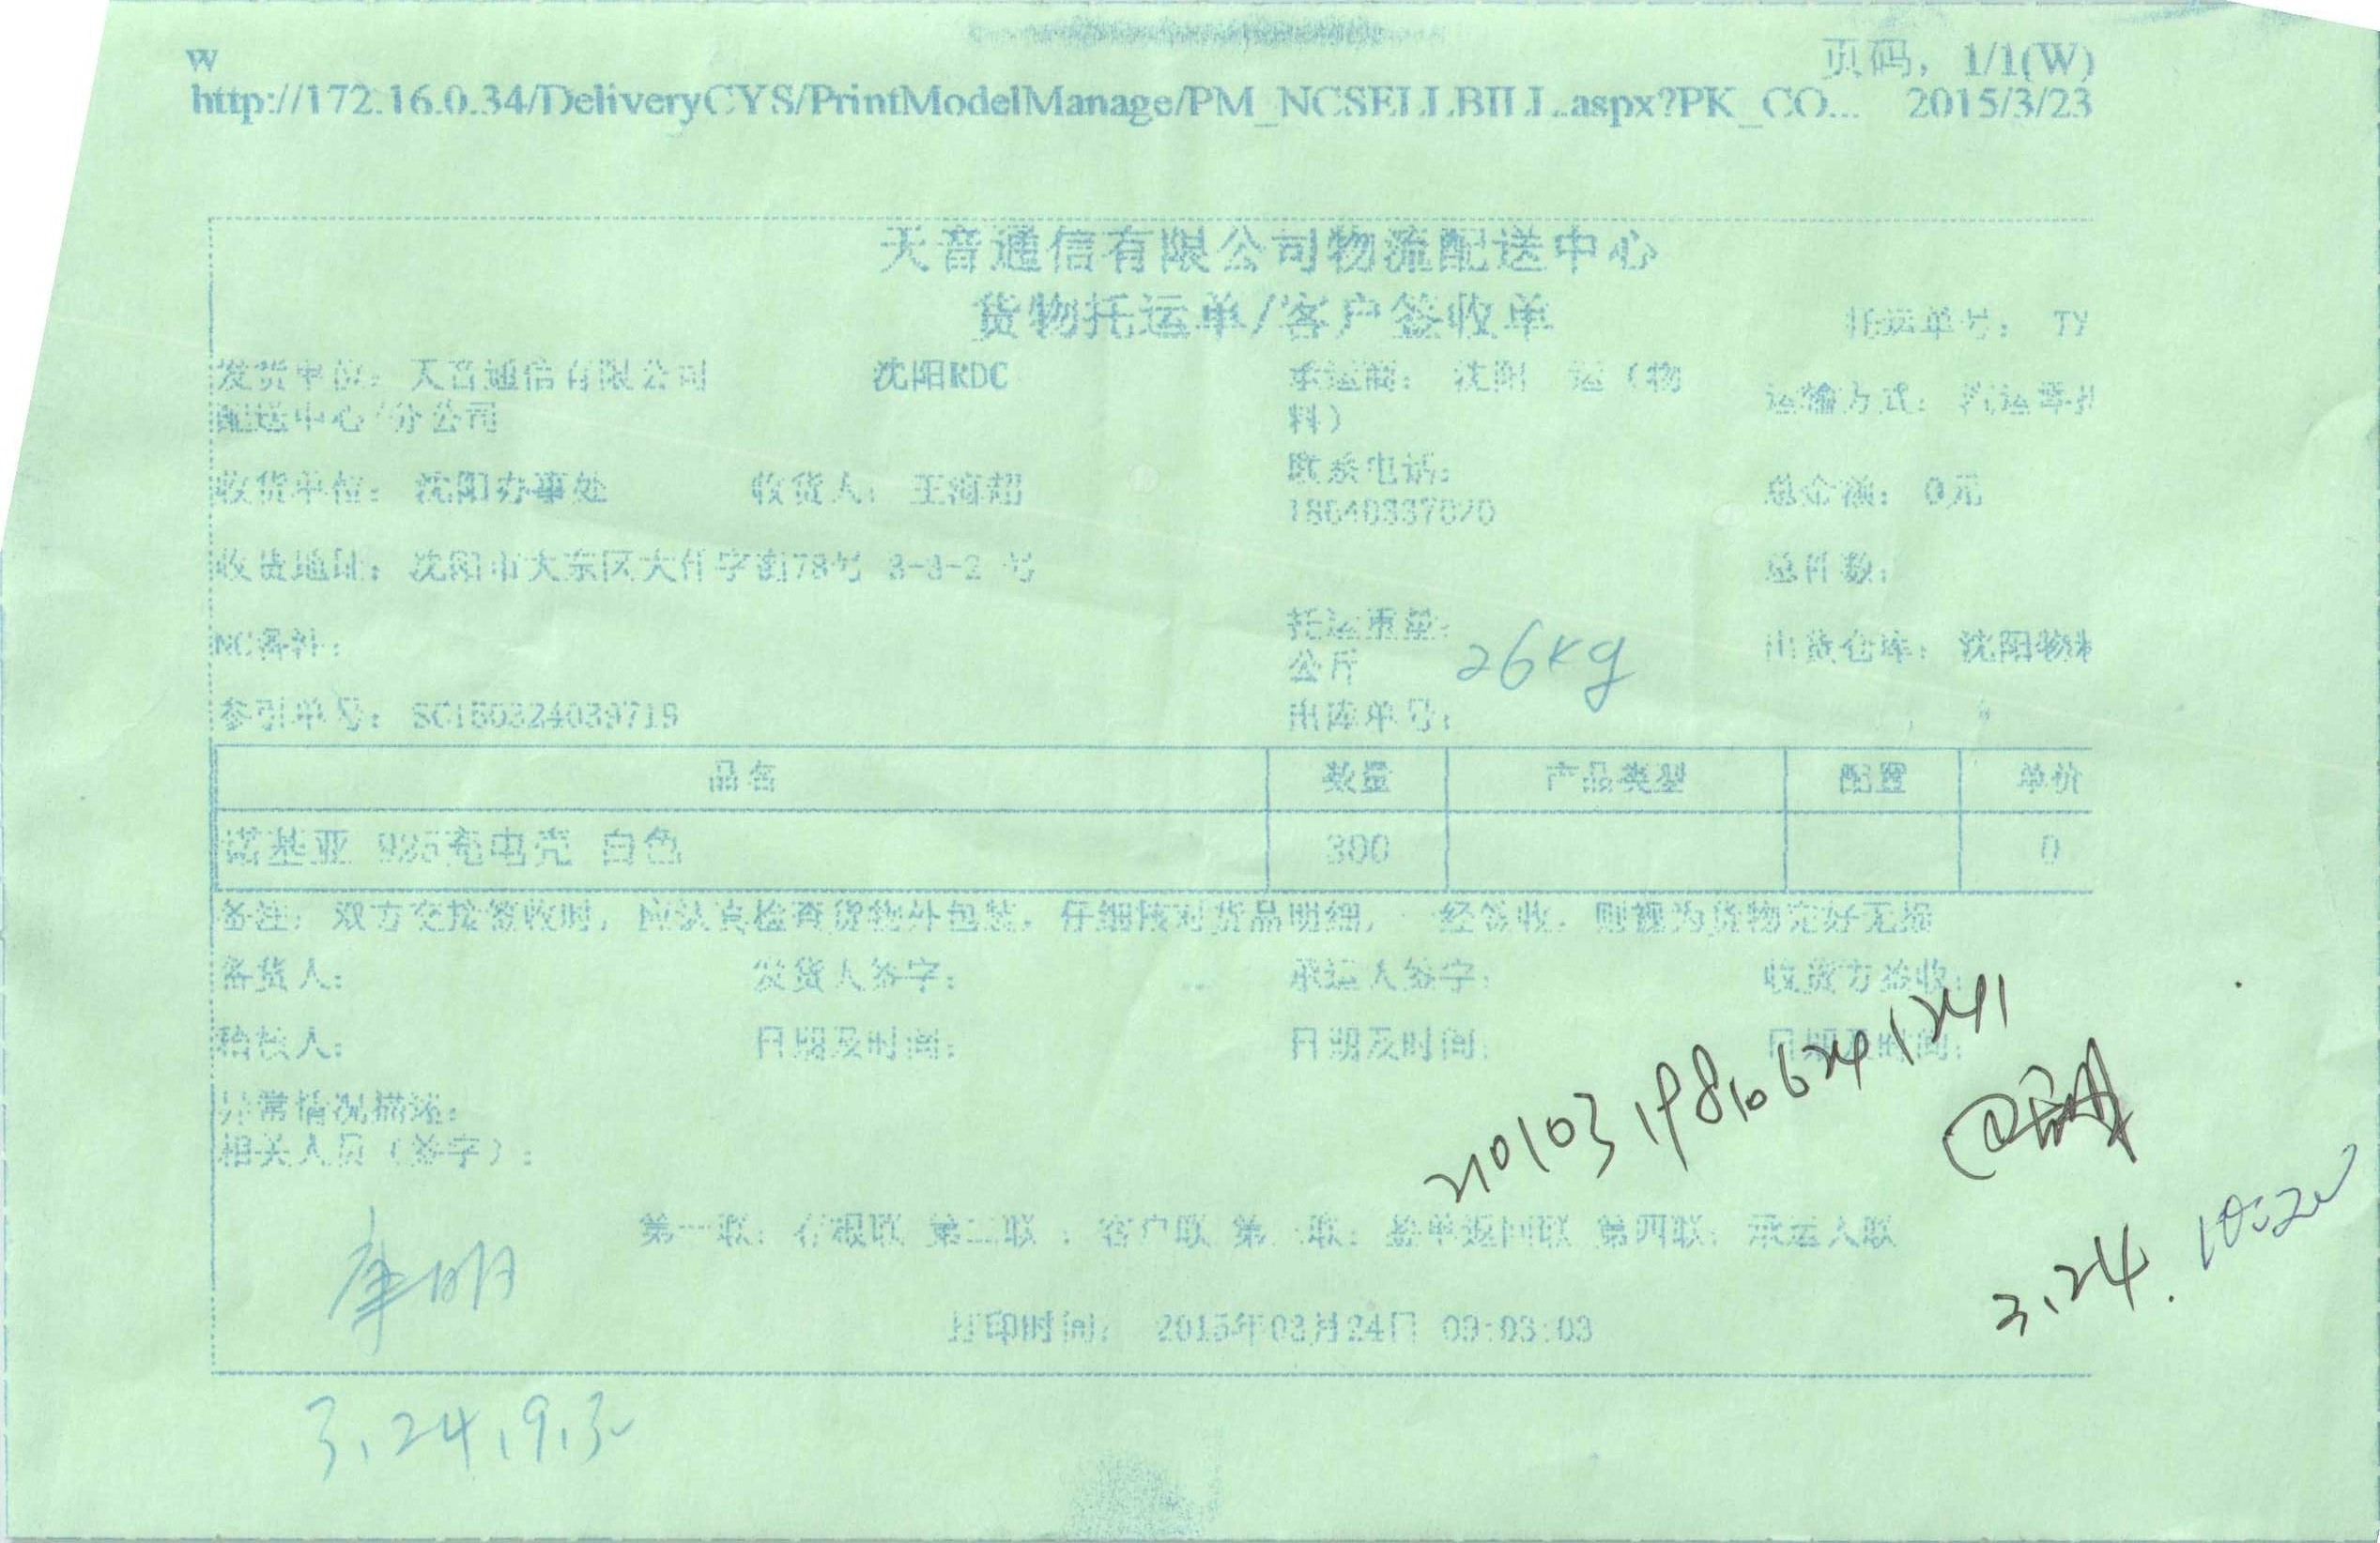 W
页码，1/1(W)
http://172.16.0.34/DeliveryCYS/PrintModelManage/PM_NCSELLBILL.aspx?PK_CO... 2015/3/23
天音通信有限公司物流配送中心
货物托运单/客户签收单 托运单号： TY
发货单位：天音通信有限公司 沈阳RDC 承运商： 沈阳 运（物 运输方式：汽运
配送中心/分公司 料）
收货单位：沈阳办事处 收货人： 联系电话： 总金额：0元
18640337070
收货地址：沈阳市大东区大什字街78号 3-3-2 号 总件数：
NC备注： 托运重量： 26Kg 出货仓库：沈阳物
公斤
参引单号：SC150324039719 出库单号：
品名 数量 产品类型 配置 单价
诺基亚 925充电壳 白色 300 0
备注：双方交接签收时，应认真检查货物外包装，仔细核对货品明细， 经签收，则视为货物完好无损
备货人： 发货人签字： 承运人签字： 收货方签收：
稽核人： 日期及时间： 日期及时间： 日期及时间：
异常情况描述：
相关人员（签字）：
第一联：存根联 第二联：客户联 第 联：签单返回联 第四联：承运人联
打印时间： 2015年03月24日 09:03:03
3.24.
3.24.9.3